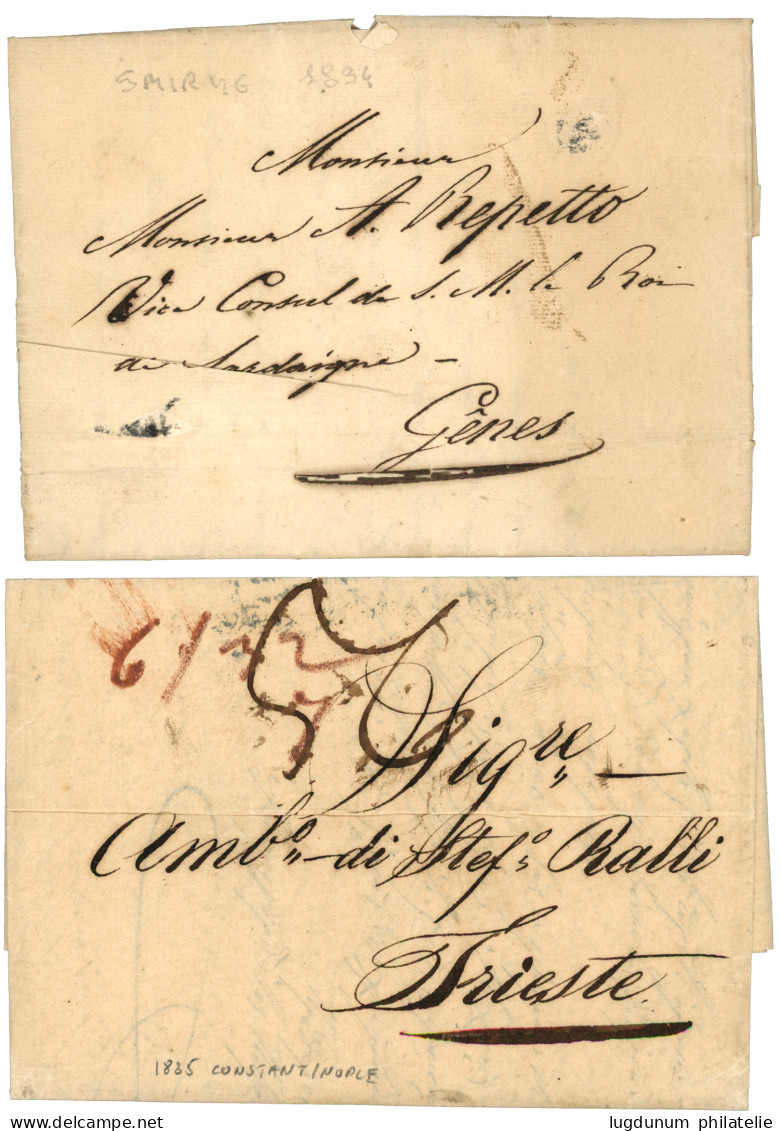 SMIRNE 1834
Monsieur
Monsieur A. Repetto
Vice Consul de S. M. le Roi
de Sardaigne –
Gênes
6/22
Sigre
Ambo di Stefo Ralli
Trieste
1835 CONSTANTINOPLE
lugdunum philatelie